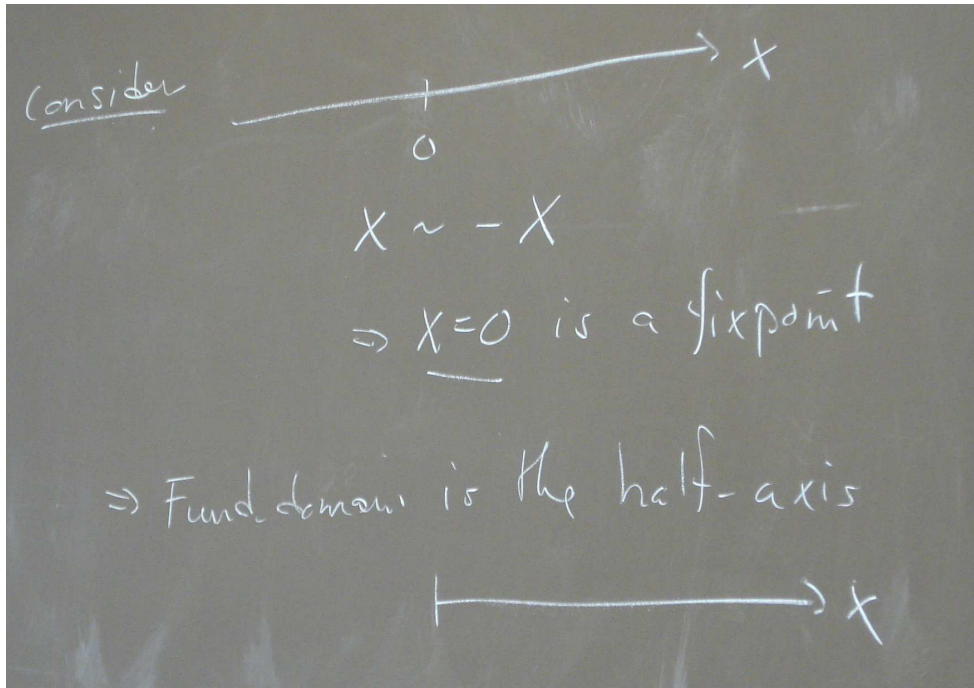 Consider
X
0
X ~ - X
⇒ X=0 is a fixpoint
⇒ Fund. domain is the half-axis
X